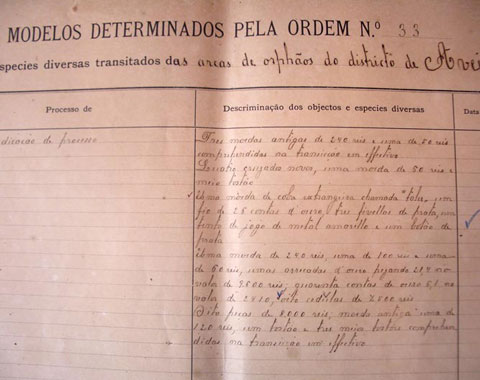 MODELOS DETERMINADOS PELA ORDEM N.º 33
especies diversas transitados das arcas de orphãos do districto de Avei
Processo de
Descriminação dos objectos e especies diversas
Data
dicação do processo
Tres moedas antigas de 240 reis e uma de 50 reis
comprehendidas na transicção em effectivo.
Quatro cruzados novos, uma moeda de 50 reis e
meio tostão
Uma moeda de cobre extrangeira chamada "tola", um
fio de 26 contas d'ouro, tres fivellas de prata, um
tento de jogo de metal amarello e um botão de
prata
Uma moeda de 240 reis, uma de 100 reis e uma
de 60 reis, umas arrecadas d'ouro pezando
valor de 9.600 reis, quarenta contas de ouro
valor de oito cedulas de reis
Oito peças de 8000 reis, moeda antiga uma de
120 reis, um tostão e tres meios tostões comprehen
didas na transicção em effectivo